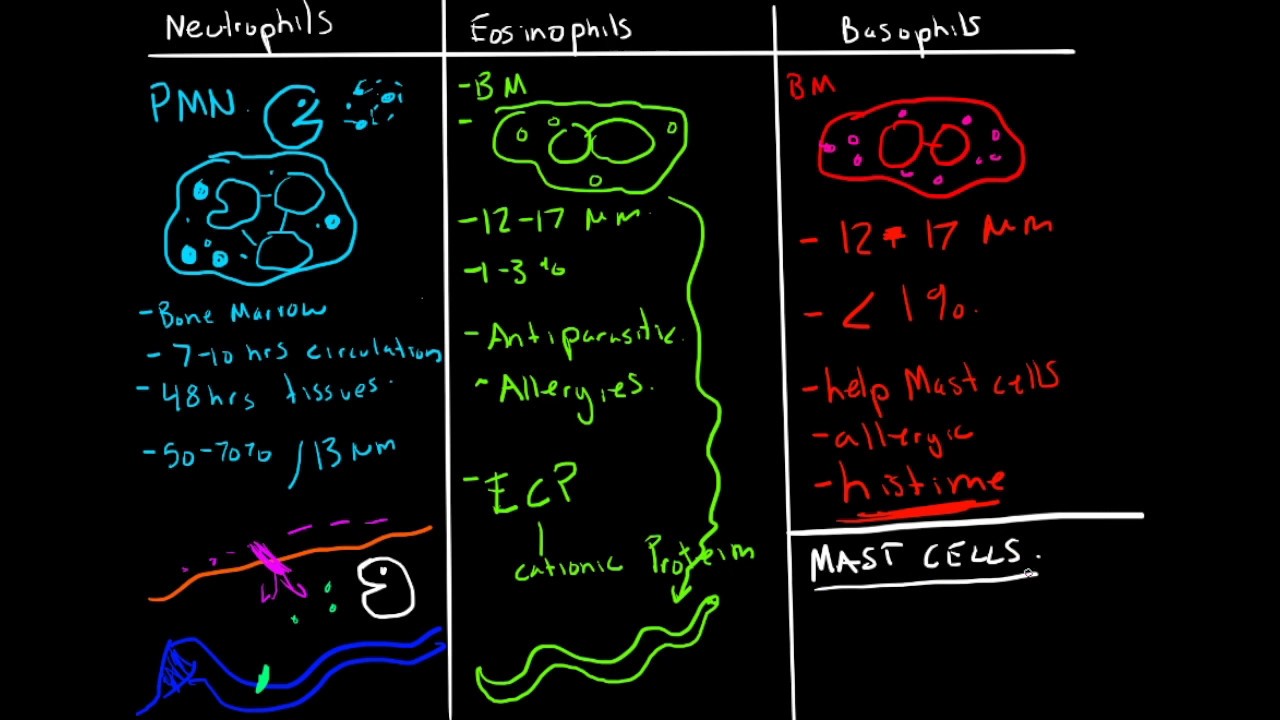 Neutrophils
PMN.
-Bone Marrow
-7-10 hrs circulation
-48hrs tissues.
-50-70% / 13 µm
Eosinophils
-BM
-
-12-17 µm.
-1-3%
-Antiparasitic.
~Allergies.
-ECP
cationic Protein
Basophils
BM
-12-17 µm
-<1%.
-help Mast cells
-allergic
-histime
MAST CELLS.